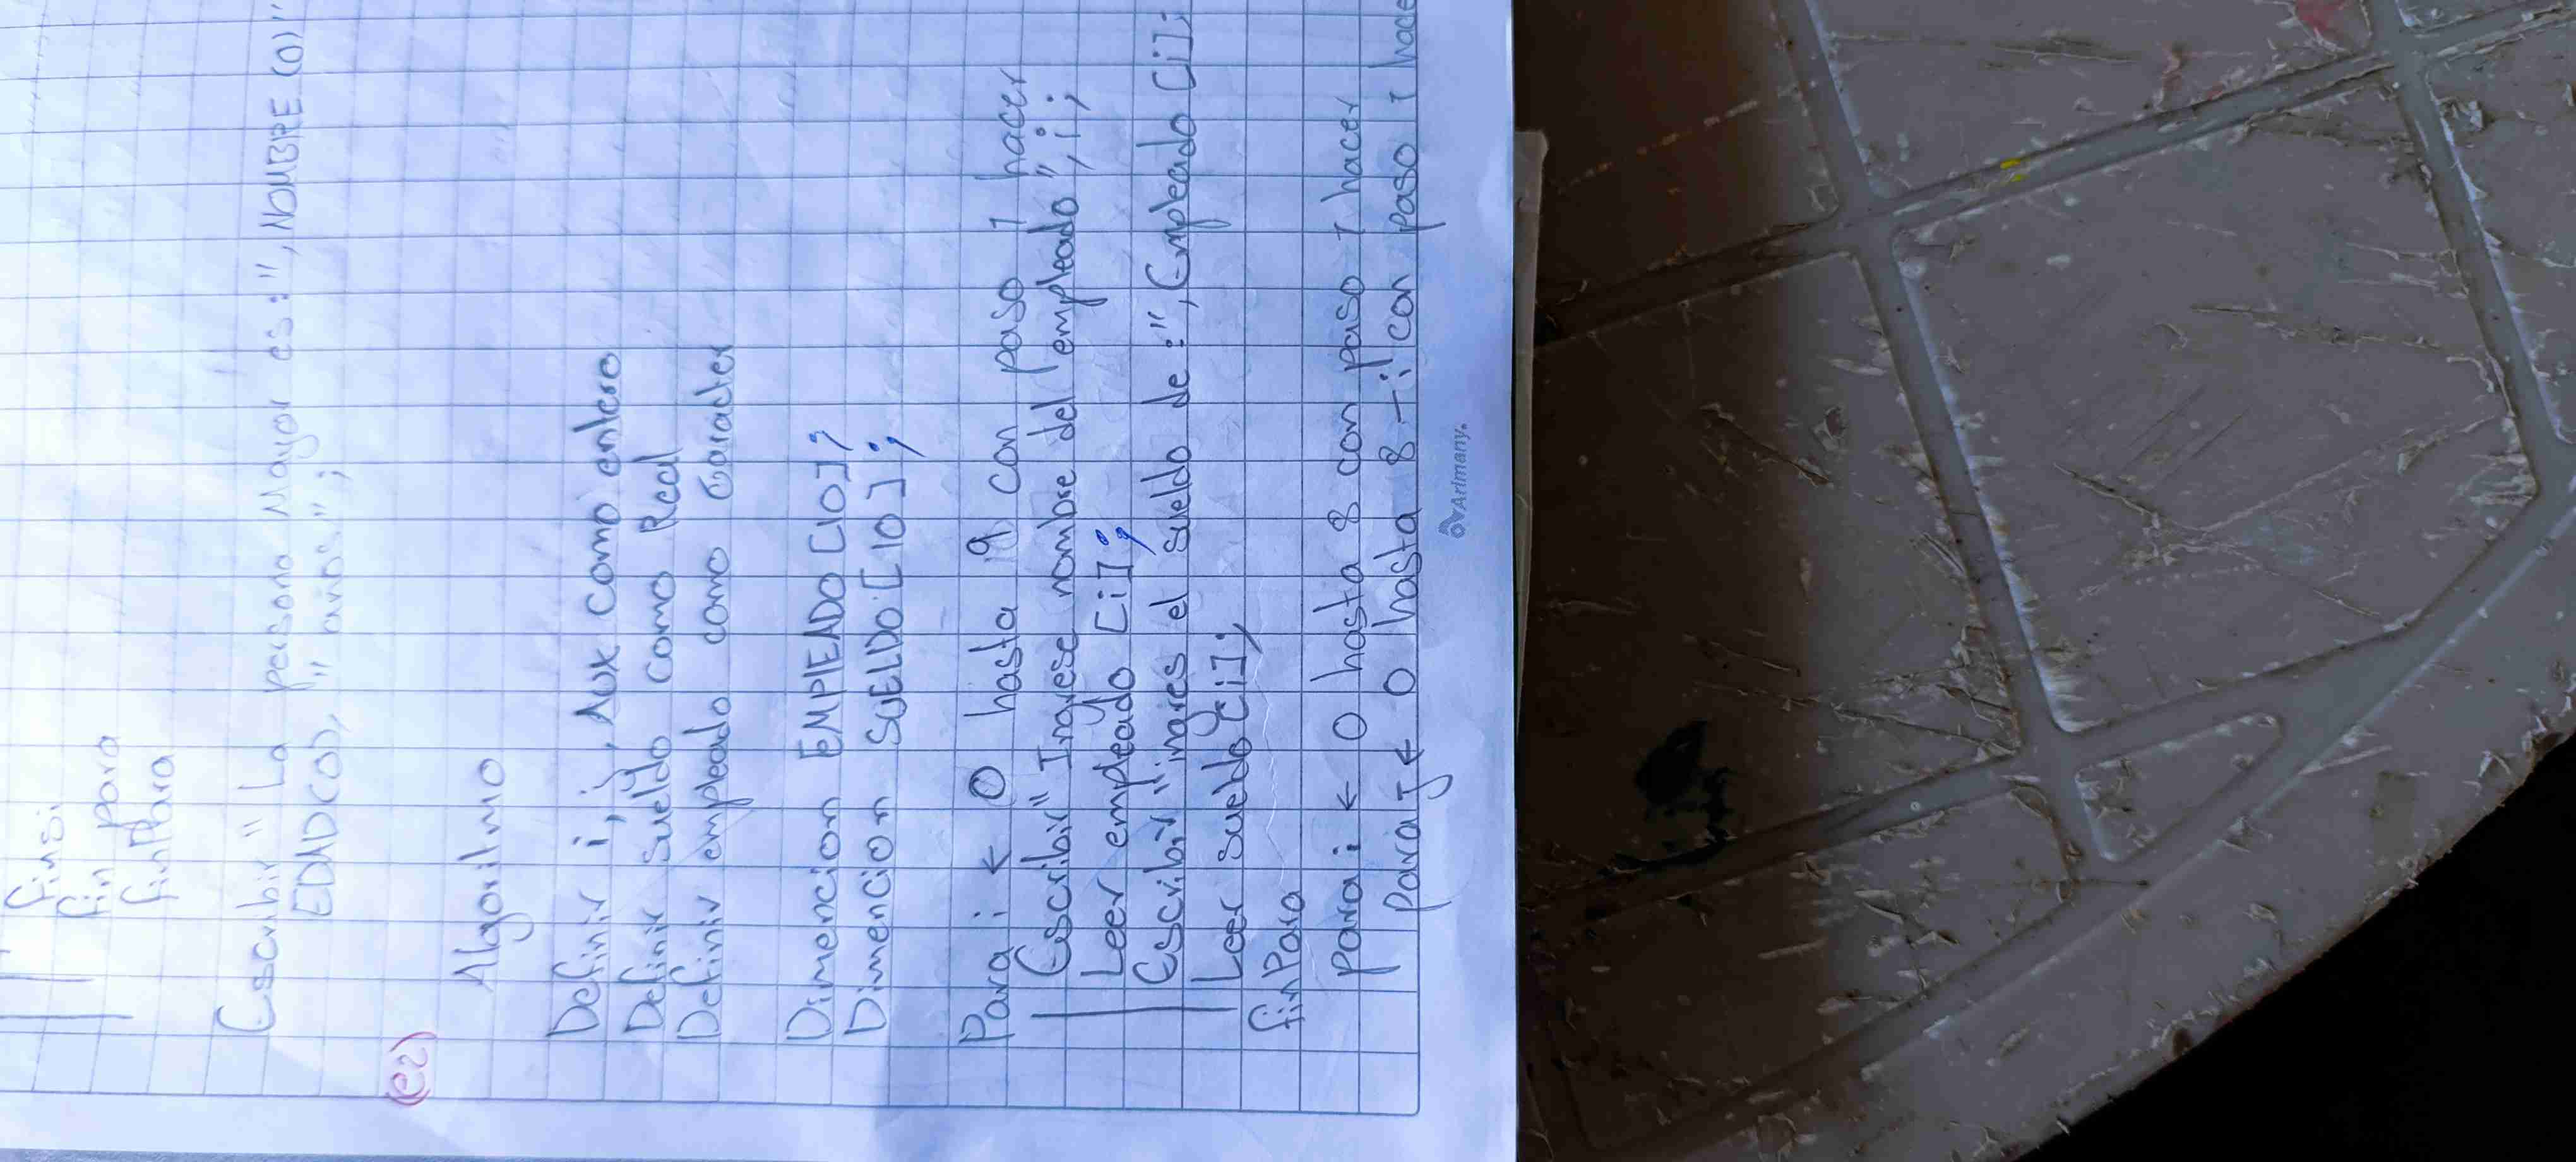 finsi
fin para
finPara
Escribir " La persona Mayor es:", NOMBRE (0)"
EDAD(0), " años";
(e2)
Algoritmo
Definir i, j, AUX como entero
Definir sueldo como Real
Definir empleado como Caracter
Dimencion EMPLEADO [10];
Dimencion SUELDO [10];
Para i ← 0 hasta 9 con paso 1 hacer
Escribir" Ingrese nombre del empleado", i;
Leer empleado [i];
Escribir" ingres el sueldo de:", Empleado [i];
Leer sueldo [i];
finPara
para i ← 0 hasta 8 con paso 1 hacer
para j ← 0 hasta 8 - i con paso 1 hace
Arimany.